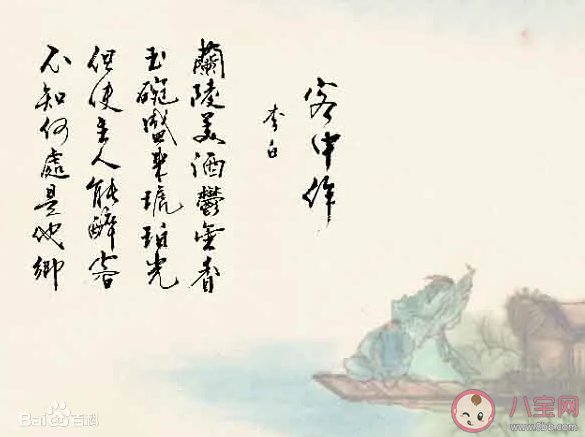 客中作
李白
蘭陵美酒鬱金香
玉碗盛來琥珀光
但使主人能醉客
不知何處是他鄉
Bai百科
八宝网
www.8bb.com